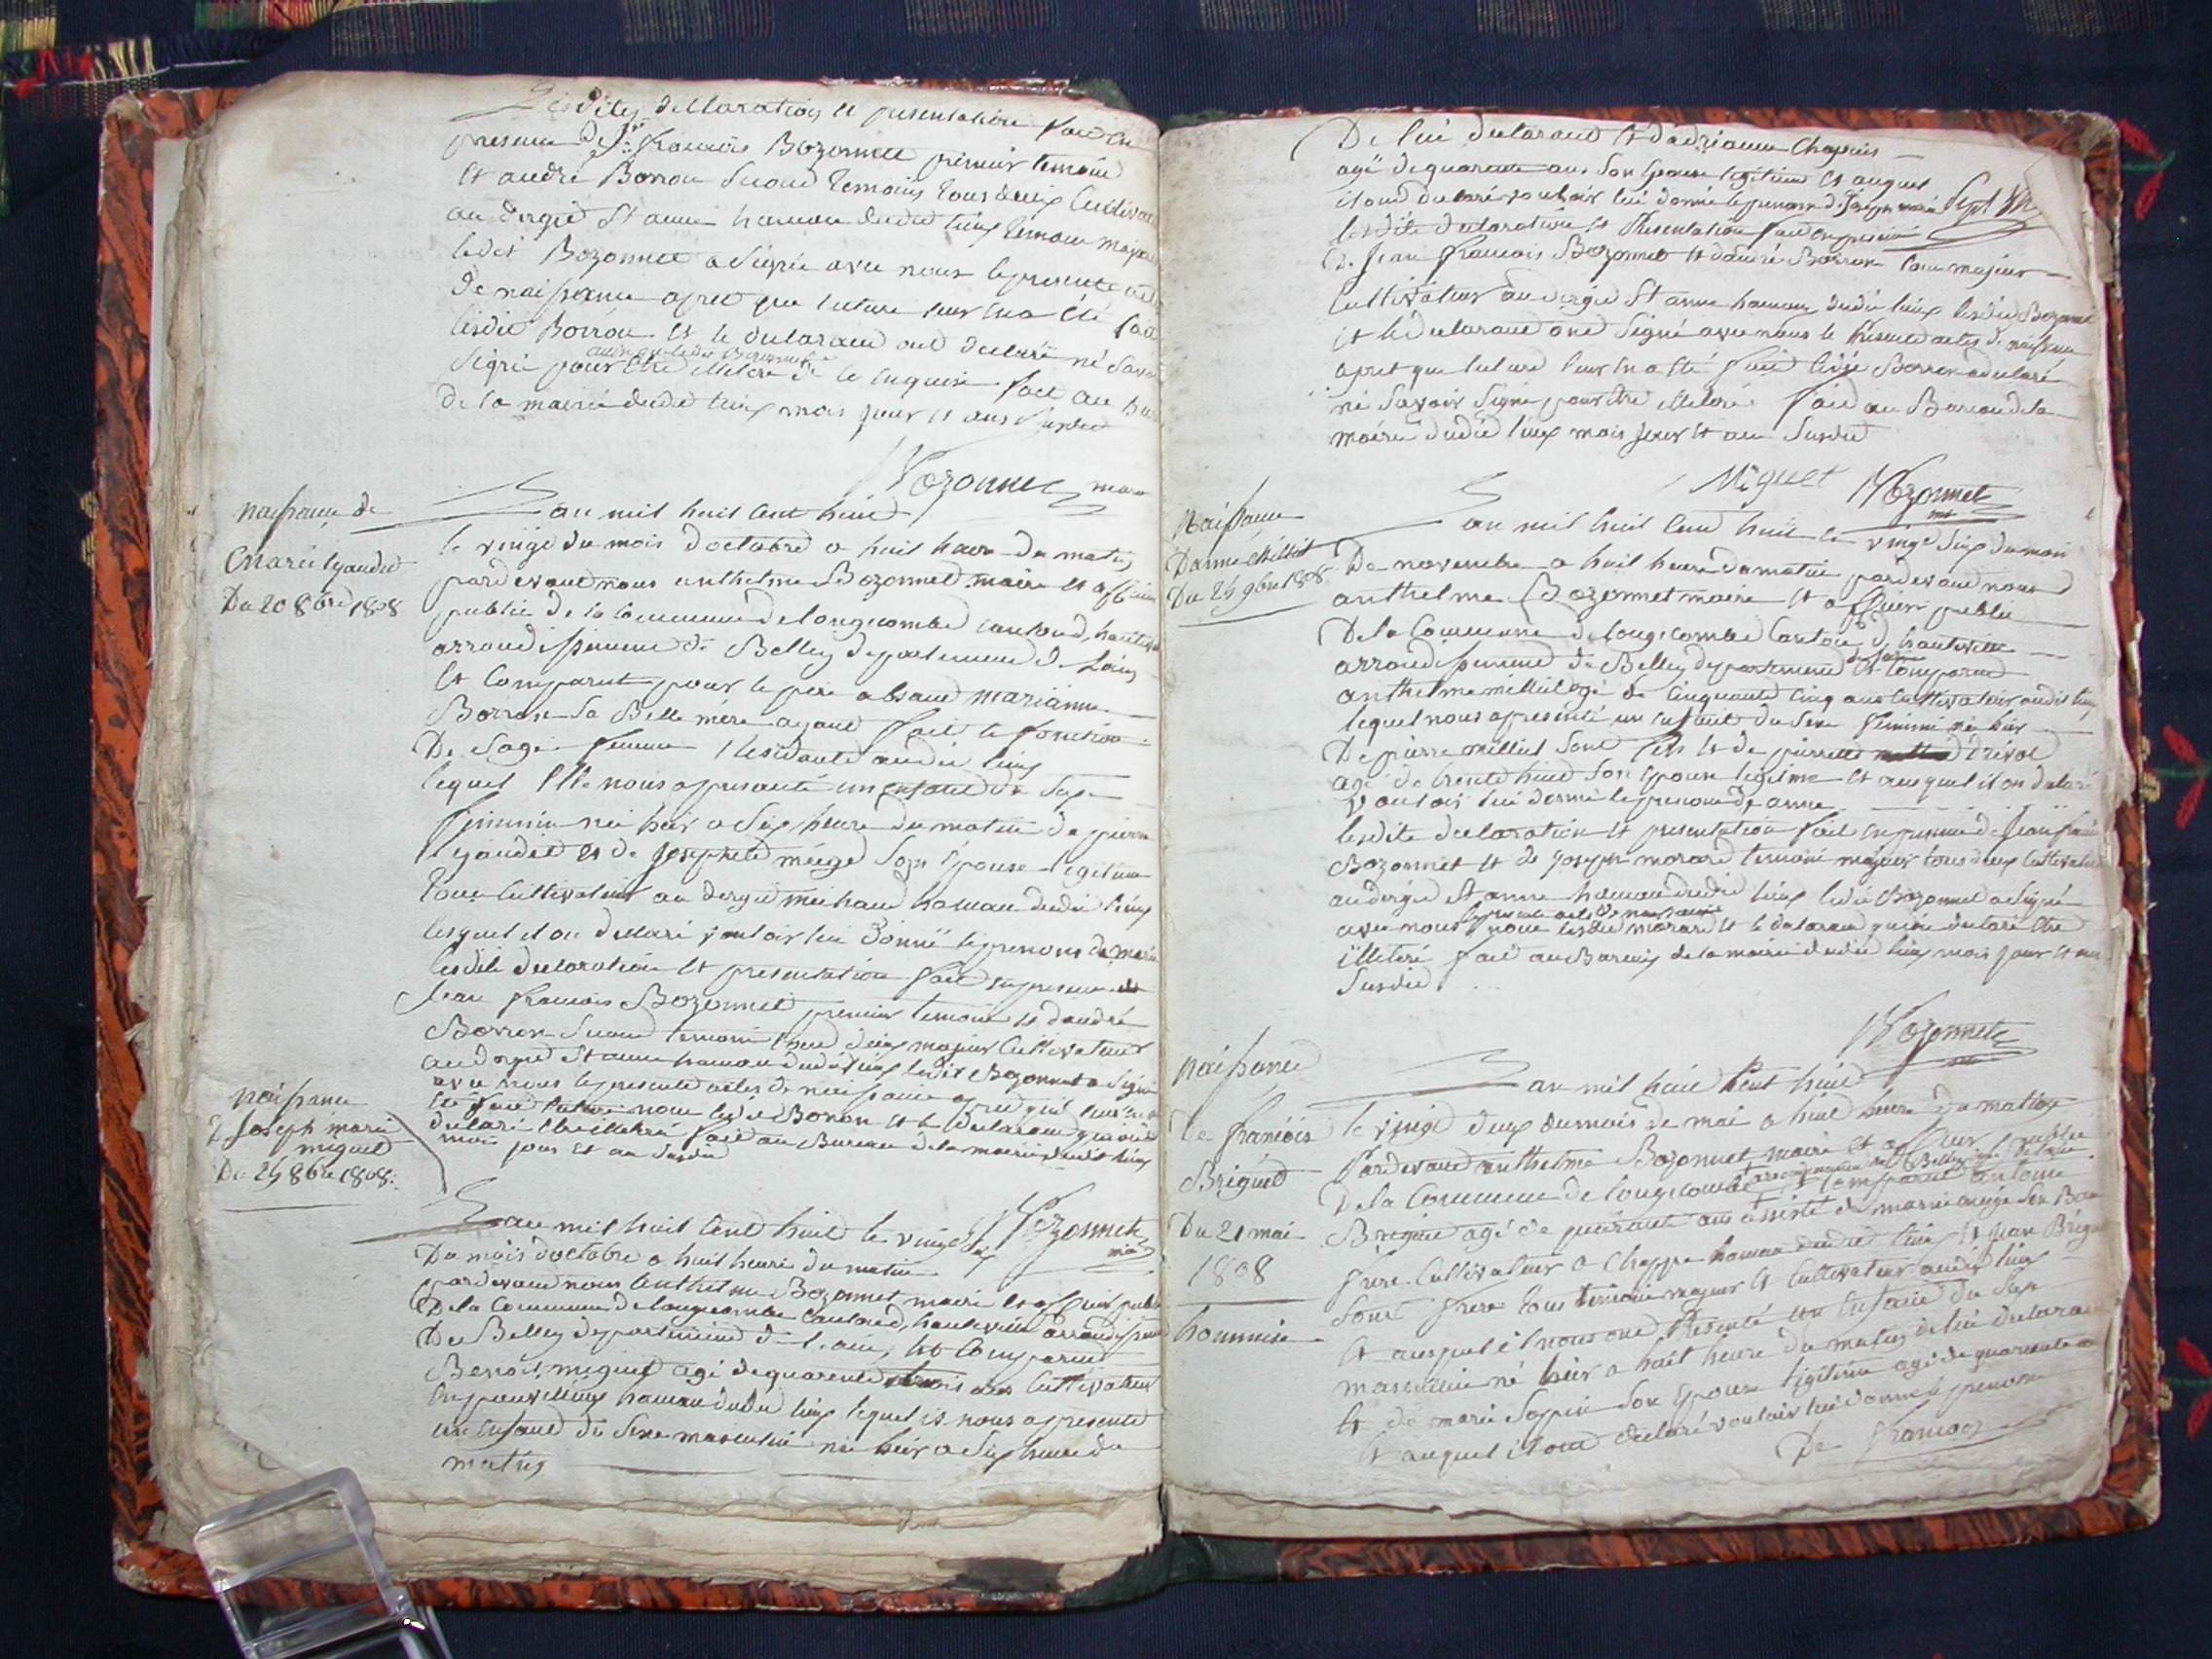 Lesdites declarations et presentation fait en
presence de Jn francois Bozonnet premier temoin
et andré Borron second temoins tous deux Cultivat
au dergis St anne hamau dudit lieux temoin majeur
ledit Bozonnet a signé avec nous le presente acte
de naissance apret que lecture leur en a été fait
lesdit Borron et le declarand ont declaré ne savoir
signé pour être illeteré de ce enquerir fait au bur
de la mairie dudit lieux mois jour et ans susdit
Bozonnet maire
naissance de
marie lyaudet
Du 20 8bre 1808
L'an mil huit cent huit
le vingt du mois d'octobre a huit heure du matin
pardevant nous anthelme Bozonnet maire et officier
public de la commune de longecombe canton d'hauteville
arrondissement de Belley departement de l'ain
Et Comparut pour le pere absent marianne
Borron sa Belle mère ayant fait la fonction
De sage femme residante audit lieux
lequel elle nous a presenté un enfant du sexe
feminin né hier a six heure du matin de pierre
lyaudet et de Josephete meige son epouse legitime
tous Cultivateur au dergis michaud hamau dudit lieux
lesquel il on declaré vouloir lui donné le prenoms de marie
lesdite declaration et presentation fait en presence de
Jean francois Bozonnet premier temoin et d'andré
Borron second temoin tous deux majeur Cultivateur
au dergis St anne hamau dudit lieux ledit Bozonnet a signé
avec nous le presente actes de naissance apret qu'il leur en a
été fait lecture nom ledit Borron et le declarant qui on
declaré être illeteré fait au Bureau de la mairie dudit lieux
mois jour et an susdit
Bozonnet
maire
naissance
de Joseph marie
miguet
Du 25 8bre 1808
L'an mil huit cent huit le vingt six
Du mois d'octobre a huit heure du matin
pardevant nous anthelme Bozonnet maire et officier public
De la Commune de longecombe canton d'hauteville arrondissement
De Belley departement de l'ain, Et Comparut
Benoit miguet agé de quarente trois ans Cultivateur
hamau dudit lieux lequel il nous a presenté
un enfant du sexe masculin né hier a six heure du
matin
De lui declarant et d'adrianne Chapuis
agé de quarante ans son epouse legitime et auquel
il ont declaré vouloir lui donné le prenom de Joseph marie
lesdite declaration et presentation fait en presence
De Jean francois Bozonnet et d'andré Borron tous majeur
Cultivateur au dergis St anne hamau dudit lieux lesdit Bozonnet
et le declarant ont signé avec nous le present actes de naissance
apret que lecture leur en a été fait ledit Borron a declaré
ne savoir signé pour être illeteré fait au Bureau de la
mairie dudit lieux mois jour et an susdit
Miguet Bozonnet
naissance
D'anne Milliet
Du 25 9bre 1808
L'an mil huit cent huit le vingt six du mois
De novembre a huit heure du matin pardevant nous
anthelme Bozonnet maire et officier public
De la Commune de longecombe Canton d'hauteville
arrondissement de Belley departement de l'ain Et Comparut
anthelme milliet agé de cinquante cinq ans Cultivateur audit lieux
lequel nous a presenté un enfant du sexe feminin né hier
De pierre milliet sont fils et de pierrette drevet
agé de trente huit son epouse legitime et auquel il on declaré
vouloir lui donné le prenom de anne
lesdite declaration et presentation fait en presence de Jean francois
Bozonnet et de Joseph morard temoin majeur tous deux Cultivateur
au dergis St anne hamau dudit lieux ledit Bozonnet a signé
avec nous le presente actes de naissance nom lesdit morard et le declarant qui on declaré être
illeteré fait au Bureaux de la mairie dudit lieux mois jour et an
susdit
Bozonnet
naissance
De francois
Briguet
Du 21 mai
1808
hommie
L'an mil huit cent huit
le vingt deux du mois de mai a huit heure du matin
Pardevant anthelme Bozonnet maire et officier public
De la Commune de longecombe arrondissement de Belley Et Comparut antoine
Briguet agé de quarante ans assisté de marie son Beau
frere Cultivateur a Chappe hamau dudit lieux et Jean Briguet
sont frere tous temoin majeur et Cultivateur audit lieux
Et auquel il nous ont Presenté un Enfant du sexe
masculin né hier a huit heure du matin de lui declarant
Et de marie Sappin son Epouse legitime agé de quarante
Et auquel il ont declaré vouloir lui donné le prenom
De francois